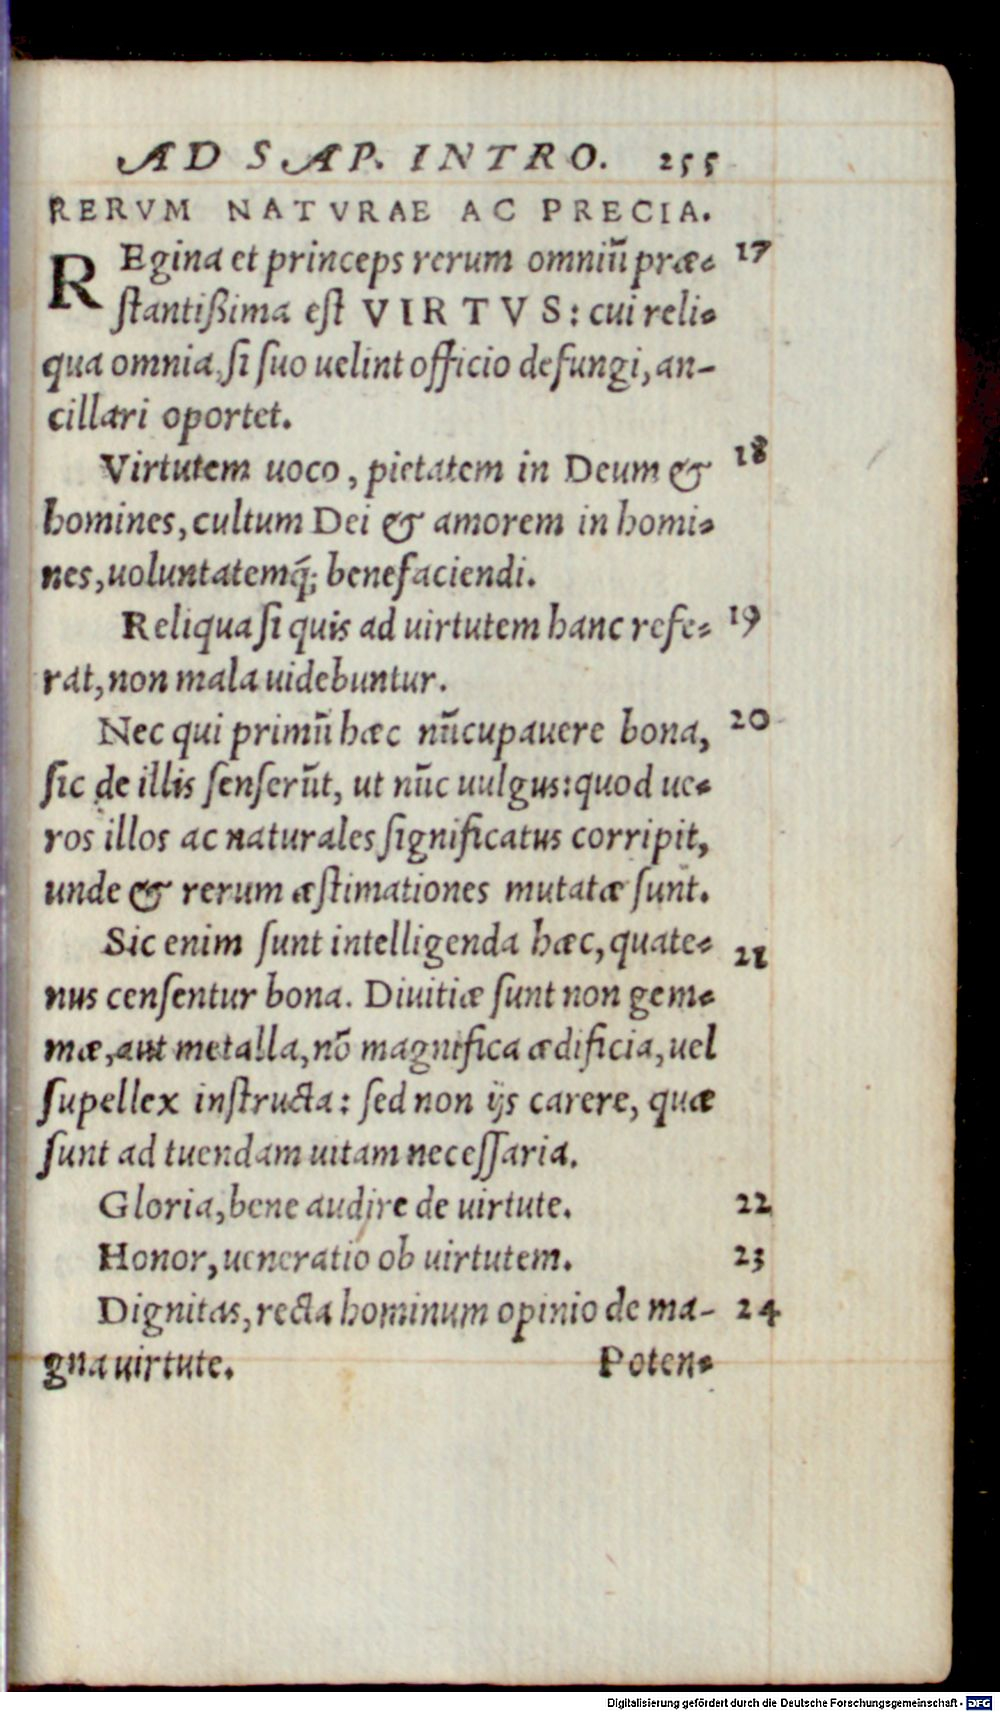 AD SAP. INTRO. 255
RERVM NATVRAE AC PRECIA.
REgina et princeps rerum omniū præ- 17
ſtantiſsima eſt VIRTVS: cui reli-
qua omnia, ſi ſuo uelint officio defungi, an-
cillari oportet.
Virtutem uoco, pietatem in Deum & 18
homines, cultum Dei & amorem in homi-
nes, uoluntatemq́; benefaciendi.
Reliqua ſi quis ad uirtutem hanc refe- 19
rat, non mala uidebuntur.
Nec qui primū hæc nūcupauere bona, 20
ſic de illis ſenſerūt, ut nūc uulgus: quod ue-
ros illos ac naturales ſignificatus corripit,
unde & rerum æſtimationes mutatæ ſunt.
Sic enim ſunt intelligenda hæc, quate- 21
nus cenſentur bona. Diuitiæ ſunt non gem-
mæ, aut metalla, nō magnifica ædificia, uel
ſupellex inſtructa: ſed non ijs carere, quæ
ſunt ad tuendam uitam neceſſaria.
Gloria, bene audire de uirtute. 22
Honor, ueneratio ob uirtutem. 23
Dignitas, recta hominum opinio de ma- 24
gna uirtute. Poten-
Digitalisierung gefördert durch die Deutsche Forschungsgemeinschaft - DFG